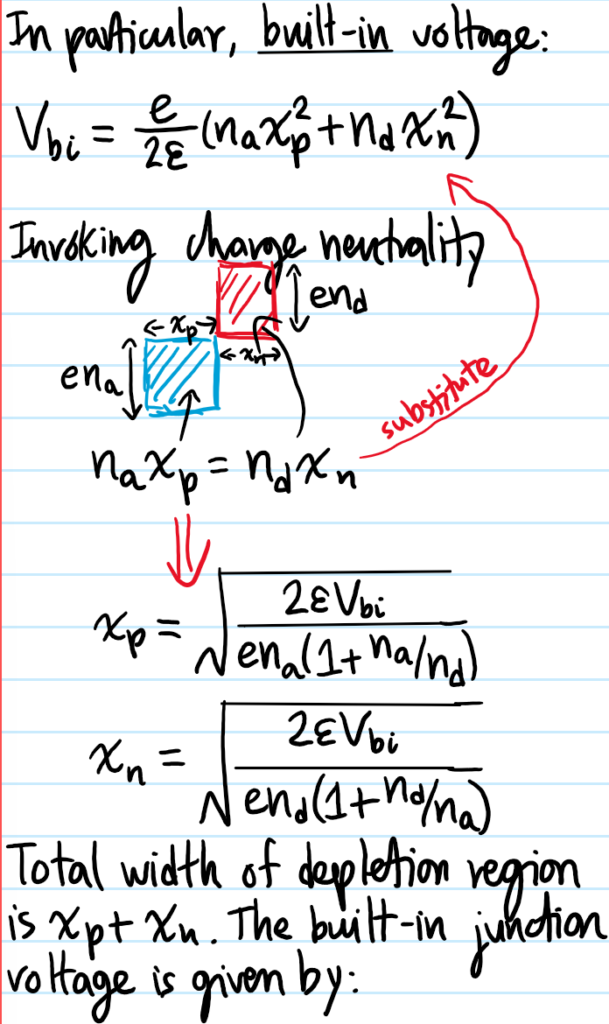 In particular, built-in voltage:
V_bi = e/2ε (n_a x_p² + n_d x_n²)
Invoking charge neutrality
en_d
x_p
x_n
en_a
substitute
n_a x_p = n_d x_n
x_p = √(2εV_bi / en_a(1+n_a/n_d))
x_n = √(2εV_bi / en_d(1+n_d/n_a))
Total width of depletion region
is x_p + x_n. The built-in junction
voltage is given by: